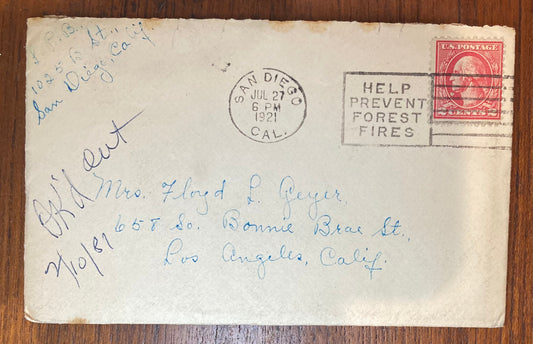 L. P. B.,
1025 B St.,
San Diego, Calif.
SAN DIEGO
JUL 27
6 PM
1921
CAL.
HELP
PREVENT
FOREST
FIRES
U.S. POSTAGE
OK'd out
2/10/81
Mrs. Floyd L. Geyer,
658 So. Bonnie Brae St.,
Los Angeles, Calif.